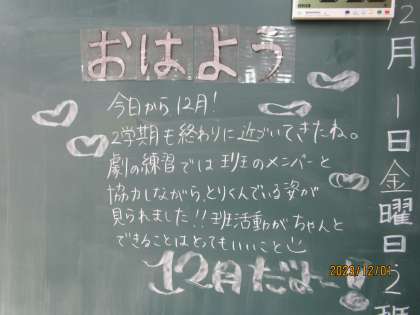 おはよう
今日から12月!
2学期も終わりに近づいてきたね。
劇の練習では班のメンバーと
協力しながら、とりくんでいる姿が
見られました!!班活動がちゃんと
できることはとってもいいこと
12月だよ〜!
12月1日金曜日2班
2023/12/01